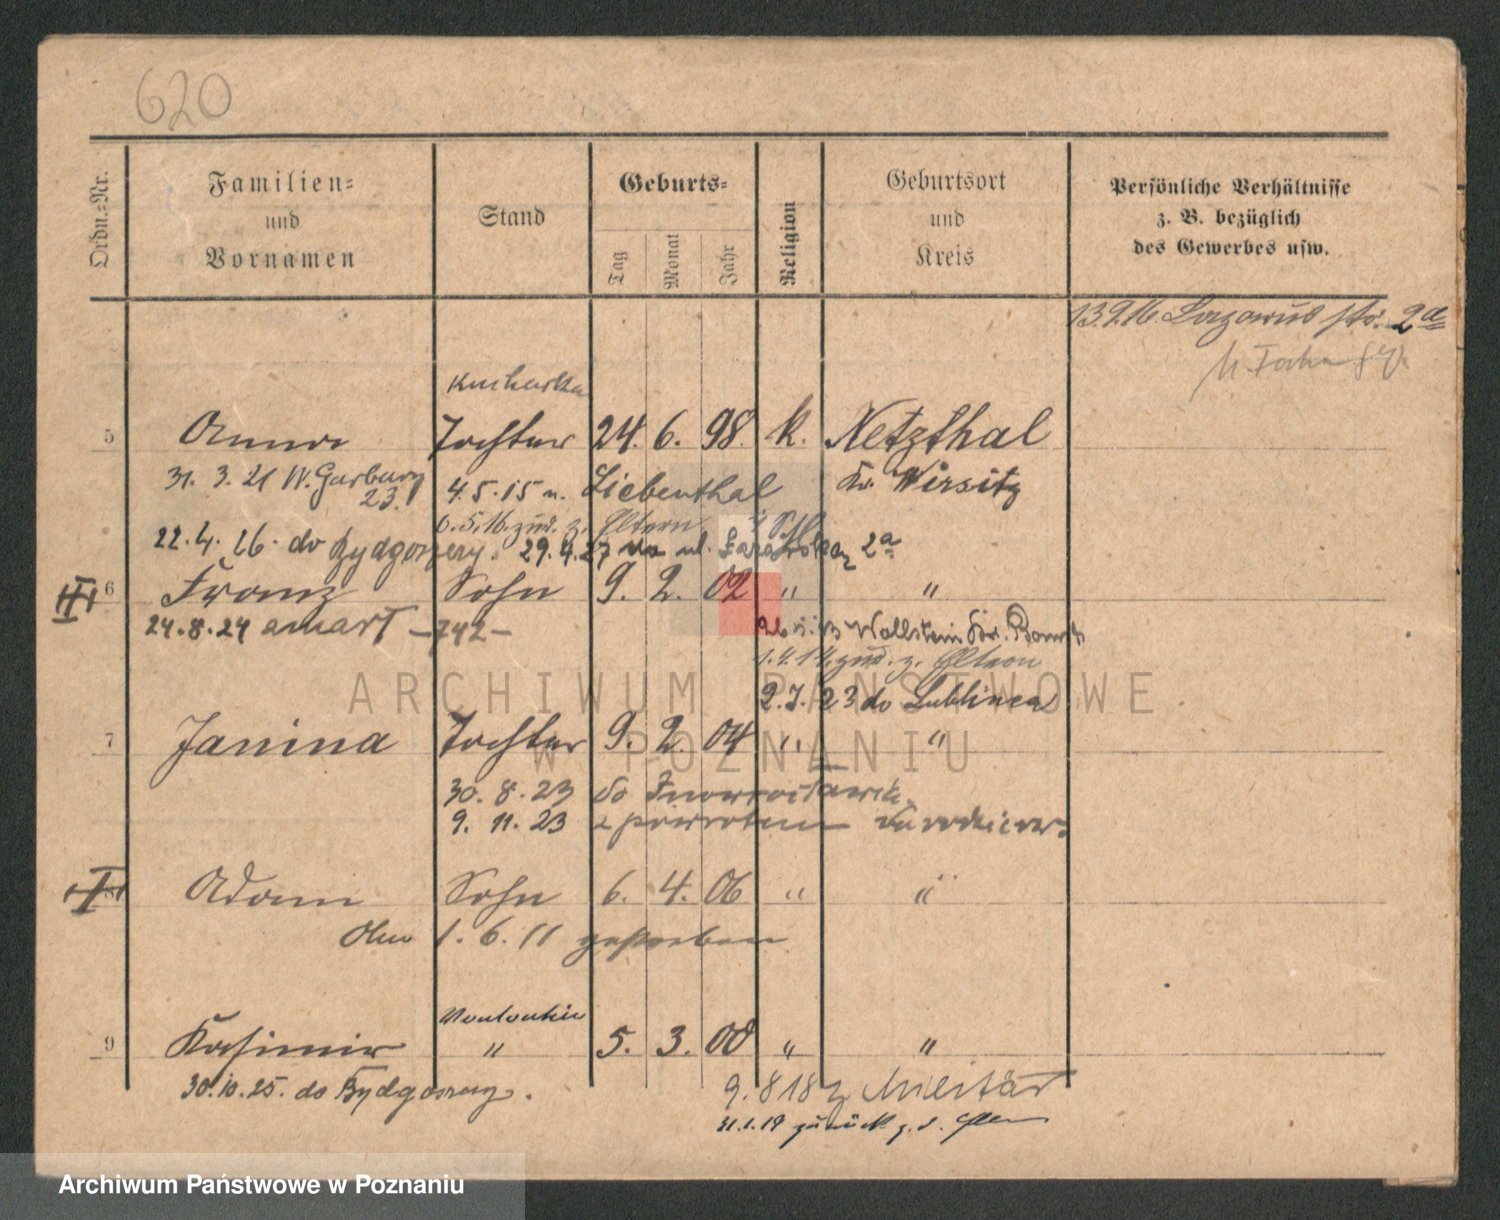 620
Ordn.-Nr.
Familien-
und
Vornamen
Stand
Geburts-
Tag
Monat
Jahr
Religion
Geburtsort
und
Kreis
Persönliche Verhältnisse
z. B. bezüglich
des Gewerbes usw.
13.9.16. Lazarus str. 2a
Kucharka
5 Anna Tochter 24. 6. 98. k. Netzthal
31. 3. 21 W. Garbary 23. 4.5.15 n. Liebenthal Kr. Wirsitz
6.5.16. zur. z. Eltern
22.4.26. do Bydgoszczy. 29.4.27 na ul. 2a
6 Franz Sohn 9. 2. 02 " "
24.8.24 umarł -742- Wollstein Kr. Bomst
1.4.14. zur. z. Eltern
2.7.23 do Lublińca
7 Janina Tochter 9. 2. 04 " "
30. 8. 23 do Inowrocławia
9. 11. 23 z powrotem
8 Adam Sohn 6. 4. 06 " "
1. 6. 11 gestorben
9 Kasimir " 5. 3. 00 " "
30.10.25. do Bydgoszczy.
9. 8 18 z Militär
31.1.19 zurück z. d.
ARCHIWUM PAŃSTWOWE
W POZNANIU
Archiwum Państwowe w Poznaniu